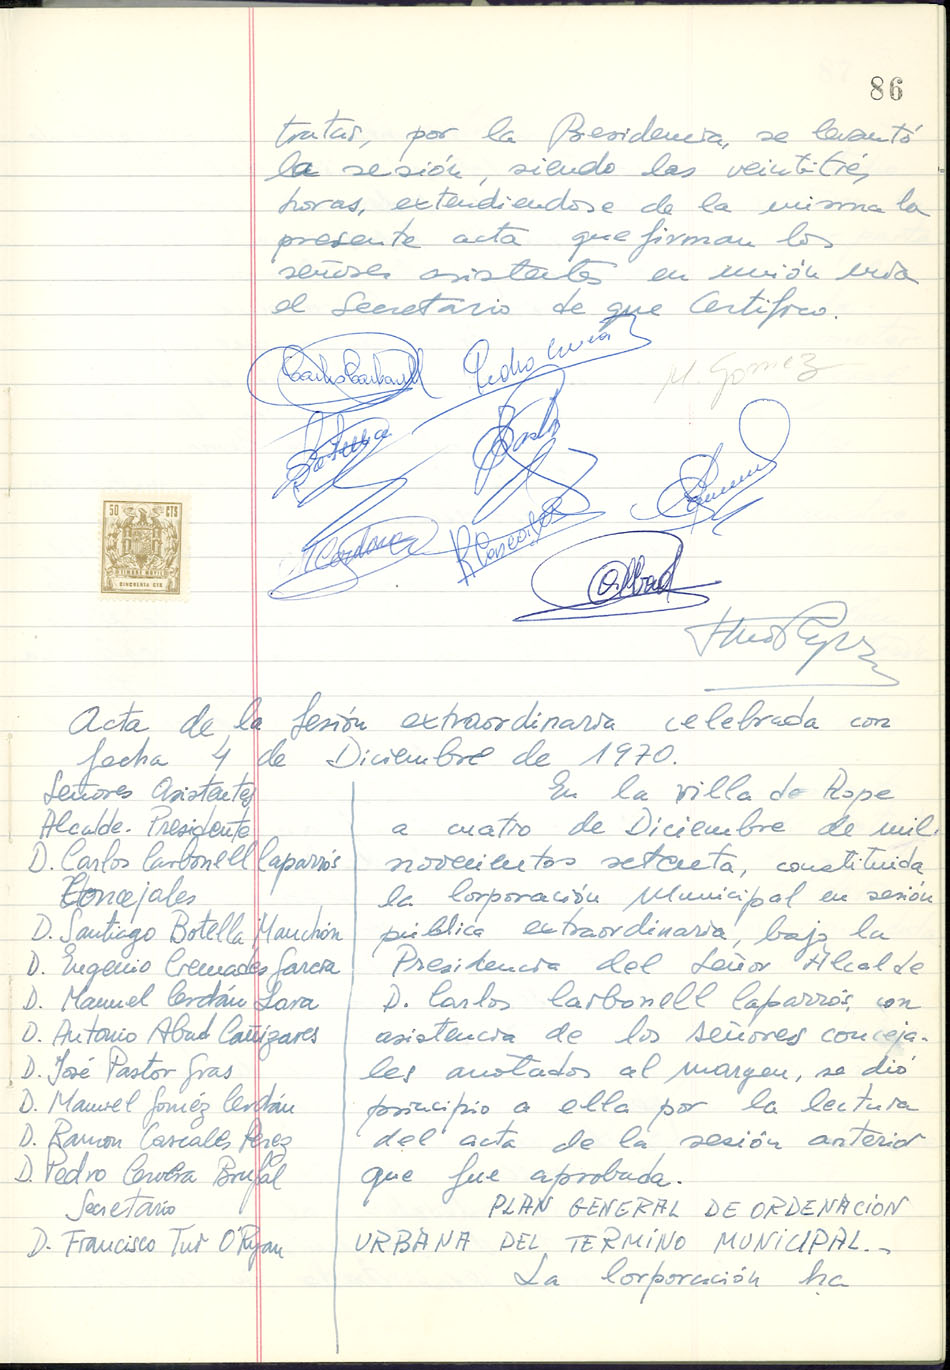 86
tratar, por la Presidencia, se levantó
la sesión, siendo las veintitrés
horas, extendiendose de la misma la
presente acta que firman los
señores asistentes en unión
el Secretario de que Certifico.
Carlos Carbonell
Pedro
M. Gomez
R Cascales
Abad
50 CTS
TIMBRE MOVIL
CINCUENTA CTS
Acta de la Sesión extraordinaria celebrada con
fecha 4 de Diciembre de 1970.
Señores Asistentes
Alcalde-Presidente
D. Carlos Carbonell Caparrós
Concejales
D. Santiago Botella Manchón
D. Eugenio Cremades Garcia
D. Manuel Cerdán Lara
D. Antonio Abad Cañizares
D. José Pastor Gras
D. Manuel Goméz Cerdán
D. Ramon Cascales Pérez
D. Pedro Cervera Brufal
Secretario
D. Francisco Tur O'Ryan
En la villa de Aspe
a cuatro de Diciembre de mil
novecientos setenta, constituida
la Corporación Municipal en sesión
pública extraordinaria, bajo la
Presidencia del Señor Alcalde
D. Carlos Carbonell Caparrós, con
asistencia de los señores conceja-
les anotados al margen, se dió
principio a ella por la lectura
del acta de la sesión anterior
que fue aprobada.
PLAN GENERAL DE ORDENACION
URBANA DEL TERMINO MUNICIPAL.-
La Corporación ha